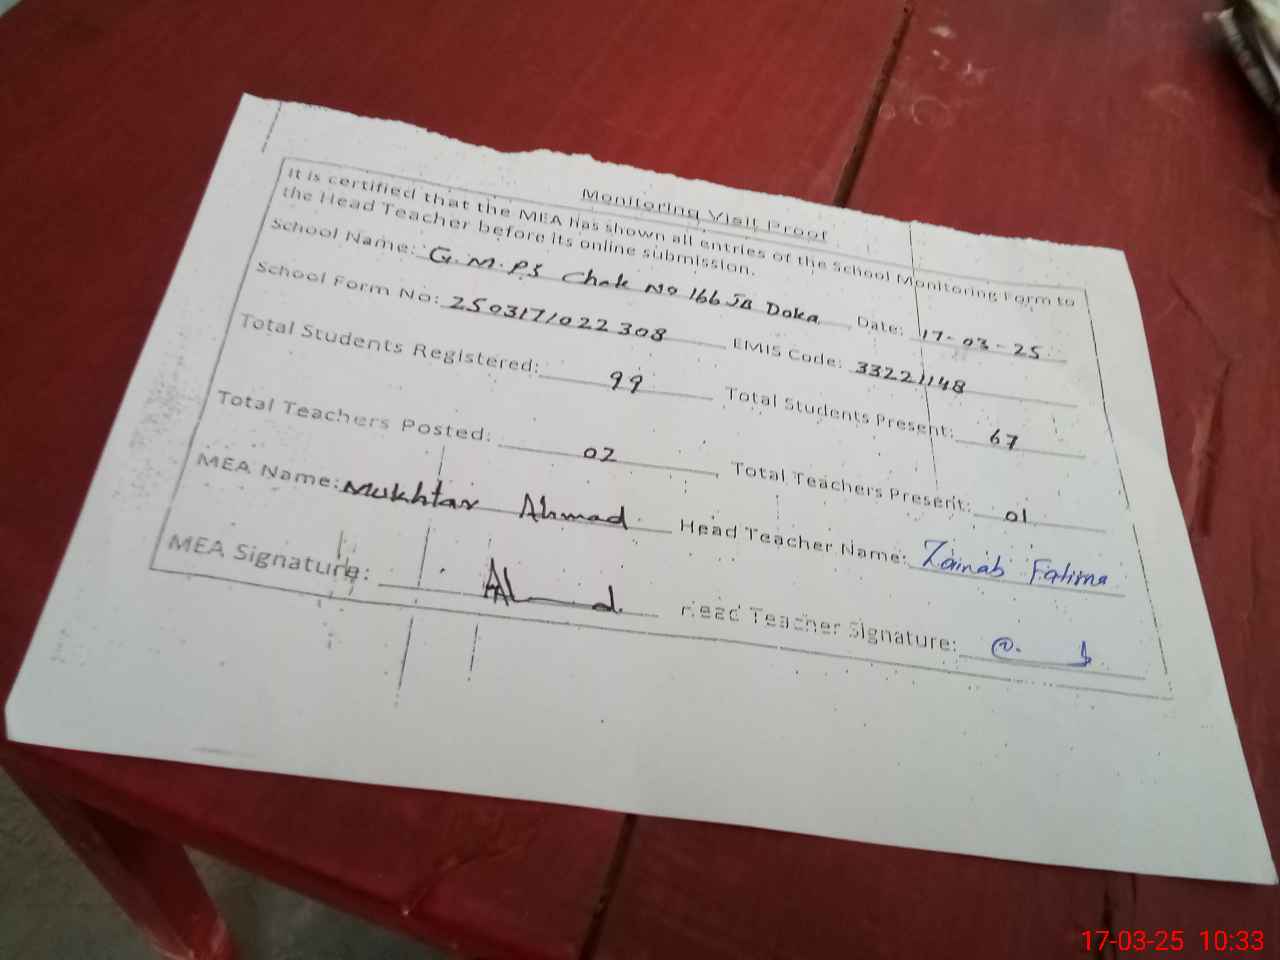 Monitoring Visit Proof
It is certified that the MEA has shown all entries of the School Monitoring Form to
the Head Teacher before its online submission.
School Name: G.M.PS Chak No 166 JB Doka Date: 17-03-25
School Form No: 250317/022308 EMIS Code: 33221148
Total Students Registered: 99 Total Students Present: 67
Total Teachers Posted: 02 Total Teachers Present: 01
MEA Name: Mukhtar Ahmad Head Teacher Name: Zainab Fatima
MEA Signature: Head Teacher Signature:
17-03-25 10:33